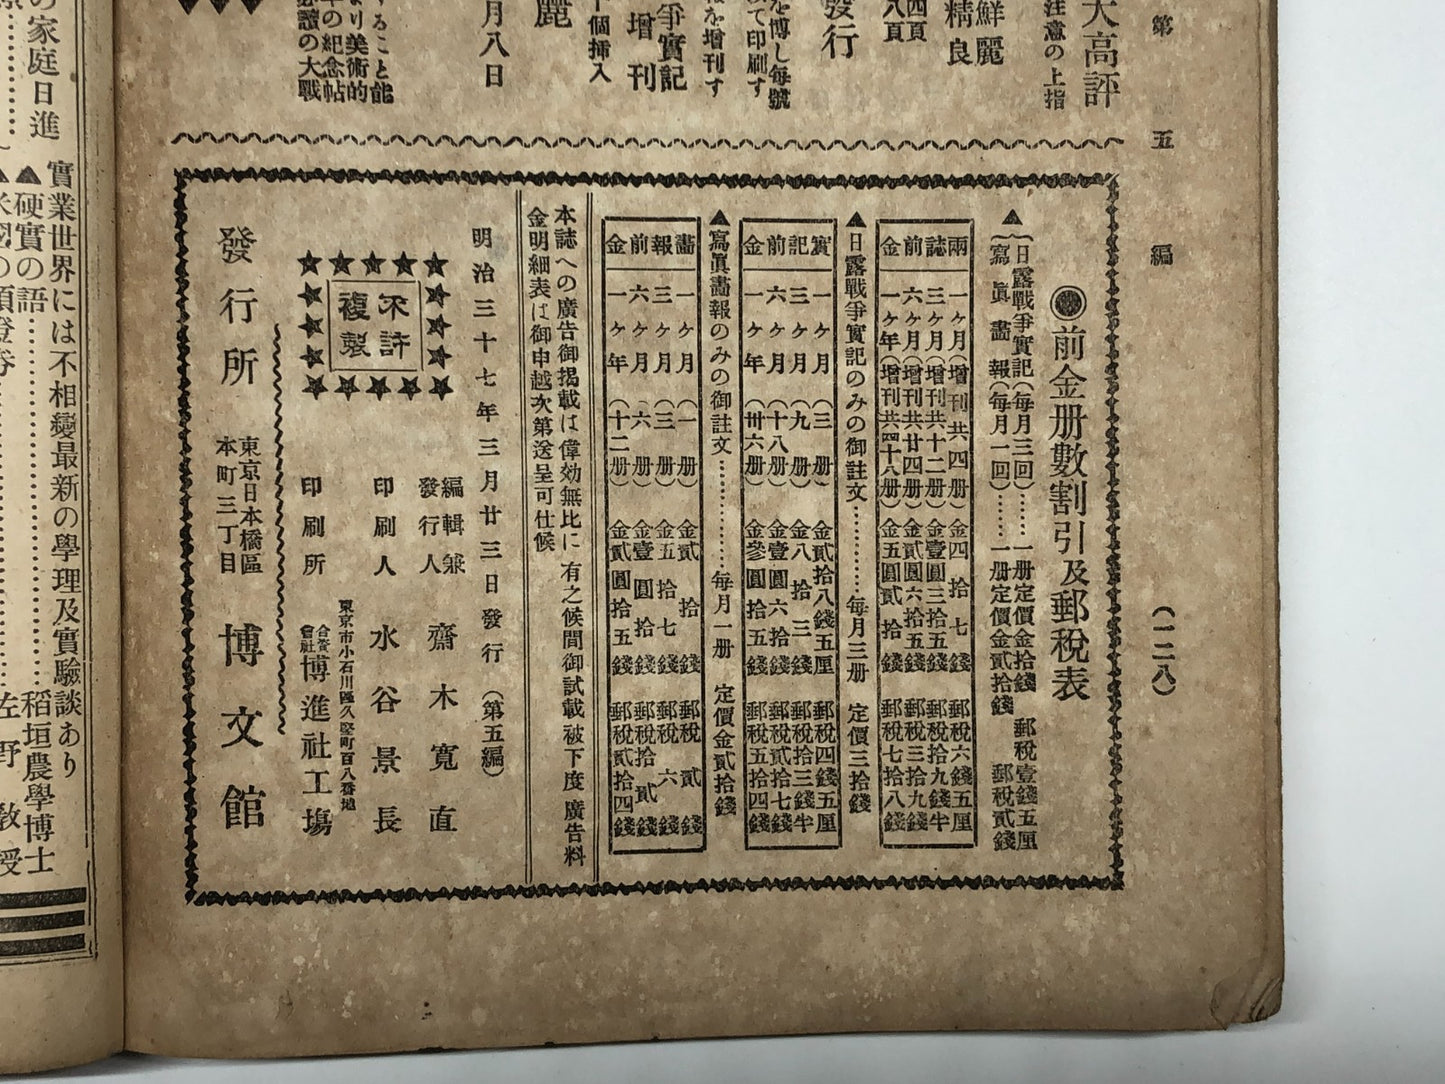 第五編
（一二八）
大高評
注意の上指
鮮麗
精良
四頁
八頁
發行
を博し毎號
て印刷す
報を增刊す
爭實記
增刊
十個挿入
麗
月八日
ること能
より美術的
年の紀念帖
必讀の大戰
◉前金册數割引及郵稅表
▲日露戰爭實記（每月三回）……一册定價金拾錢　郵稅壹錢五厘
寫眞畵報（每月一回）……一册定價金貳拾錢　郵稅貳錢
兩誌前金
一ヶ月（增刊共四册）金四拾七錢　郵稅六錢五厘
三ヶ月（增刊共十二册）金壹圓三拾五錢　郵稅拾九錢半
六ヶ月（增刊共廿四册）金貳圓六拾五錢　郵稅三拾九錢
一ヶ年（增刊共四十八册）金五圓貳拾錢　郵稅七拾八錢
▲日露戰爭實記のみの御註文…………每月三册　定價三拾錢
實記前金
一ヶ月（三册）金貳拾八錢五厘　郵稅四錢五厘
三ヶ月（九册）金八拾三錢　郵稅拾三錢半
六ヶ月（十八册）金壹圓六拾錢　郵稅貳拾七錢
一ヶ年（卅六册）金參圓拾五錢　郵稅五拾四錢
▲寫眞畵報のみの御註文…………每月一册　定價金貳拾錢
畵報前金
一ヶ月（一册）金貳拾錢　郵稅貳錢
三ヶ月（三册）金五拾七錢　郵稅六錢
六ヶ月（六册）金壹圓拾錢　郵稅拾貳錢
一ヶ年（十二册）金貳圓拾五錢　郵稅貳拾四錢
本誌への廣告御揭載は偉効無比に有之候間御試載被下度廣告料
金明細表は御申越次第送呈可仕候
明治三十七年三月廿三日發行（第五編）
不許
複製
編輯兼
發行人　齋木寬直
印刷人　水谷景長
東京市小石川區久堅町百八番地
印刷所　合資會社博進社工塲
發行所　東京日本橋區
本町三丁目　博文館
の家庭日進
實業世界には不相變最新の學理及實驗談あり
▲硬實の語…………稻垣農學博士
佐野教授